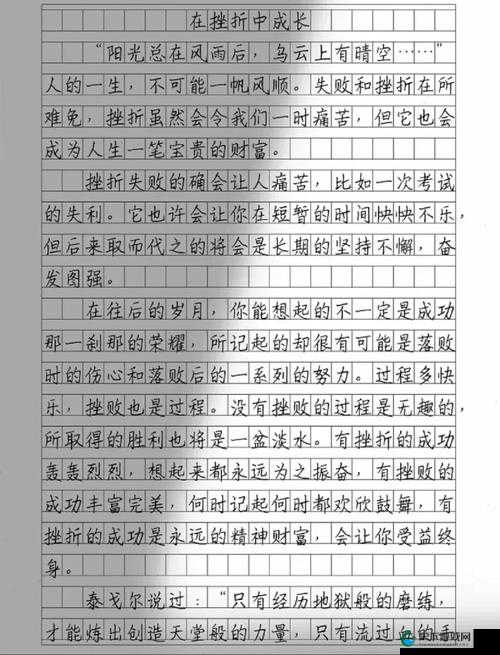 在挫折中成长
“阳光总在风雨后，乌云上有晴空……”
人的一生，不可能一帆风顺。失败和挫折在所
难免，挫折虽然会令我们一时痛苦，但它也会
成为人生一笔宝贵的财富。
挫折失败的确会让人痛苦，比如一次考试
的失利。它也许会让你在短暂的时间怏怏不乐，
但后来取而代之的将会是长期的坚持不懈，奋
发图强。
在往后的岁月，你能想起的不一定是成功
那一刹那的荣耀，所记起的却很有可能是落败
时的伤心和落败后的一系列的努力。过程多快
乐，挫败也是过程。没有挫败的过程是无趣的，
所取得的胜利也将是一盆淡水。有挫折的成功
轰轰烈烈，想起来都永远为之振奋，有挫败的
成功丰富完美，何时记起何时都欢欣鼓舞，有
挫折的成功是永远的精神财富，会让你受益终
身。
泰戈尔说过：“只有经历地狱般的磨练，
才能炼出创造天堂般的力量，只有流过血的手